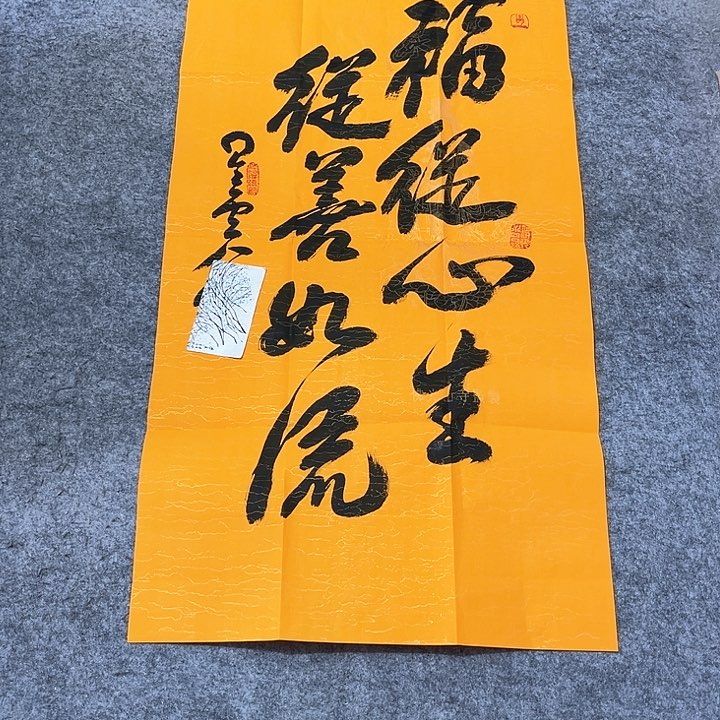 福從心生
從善如流
星雲